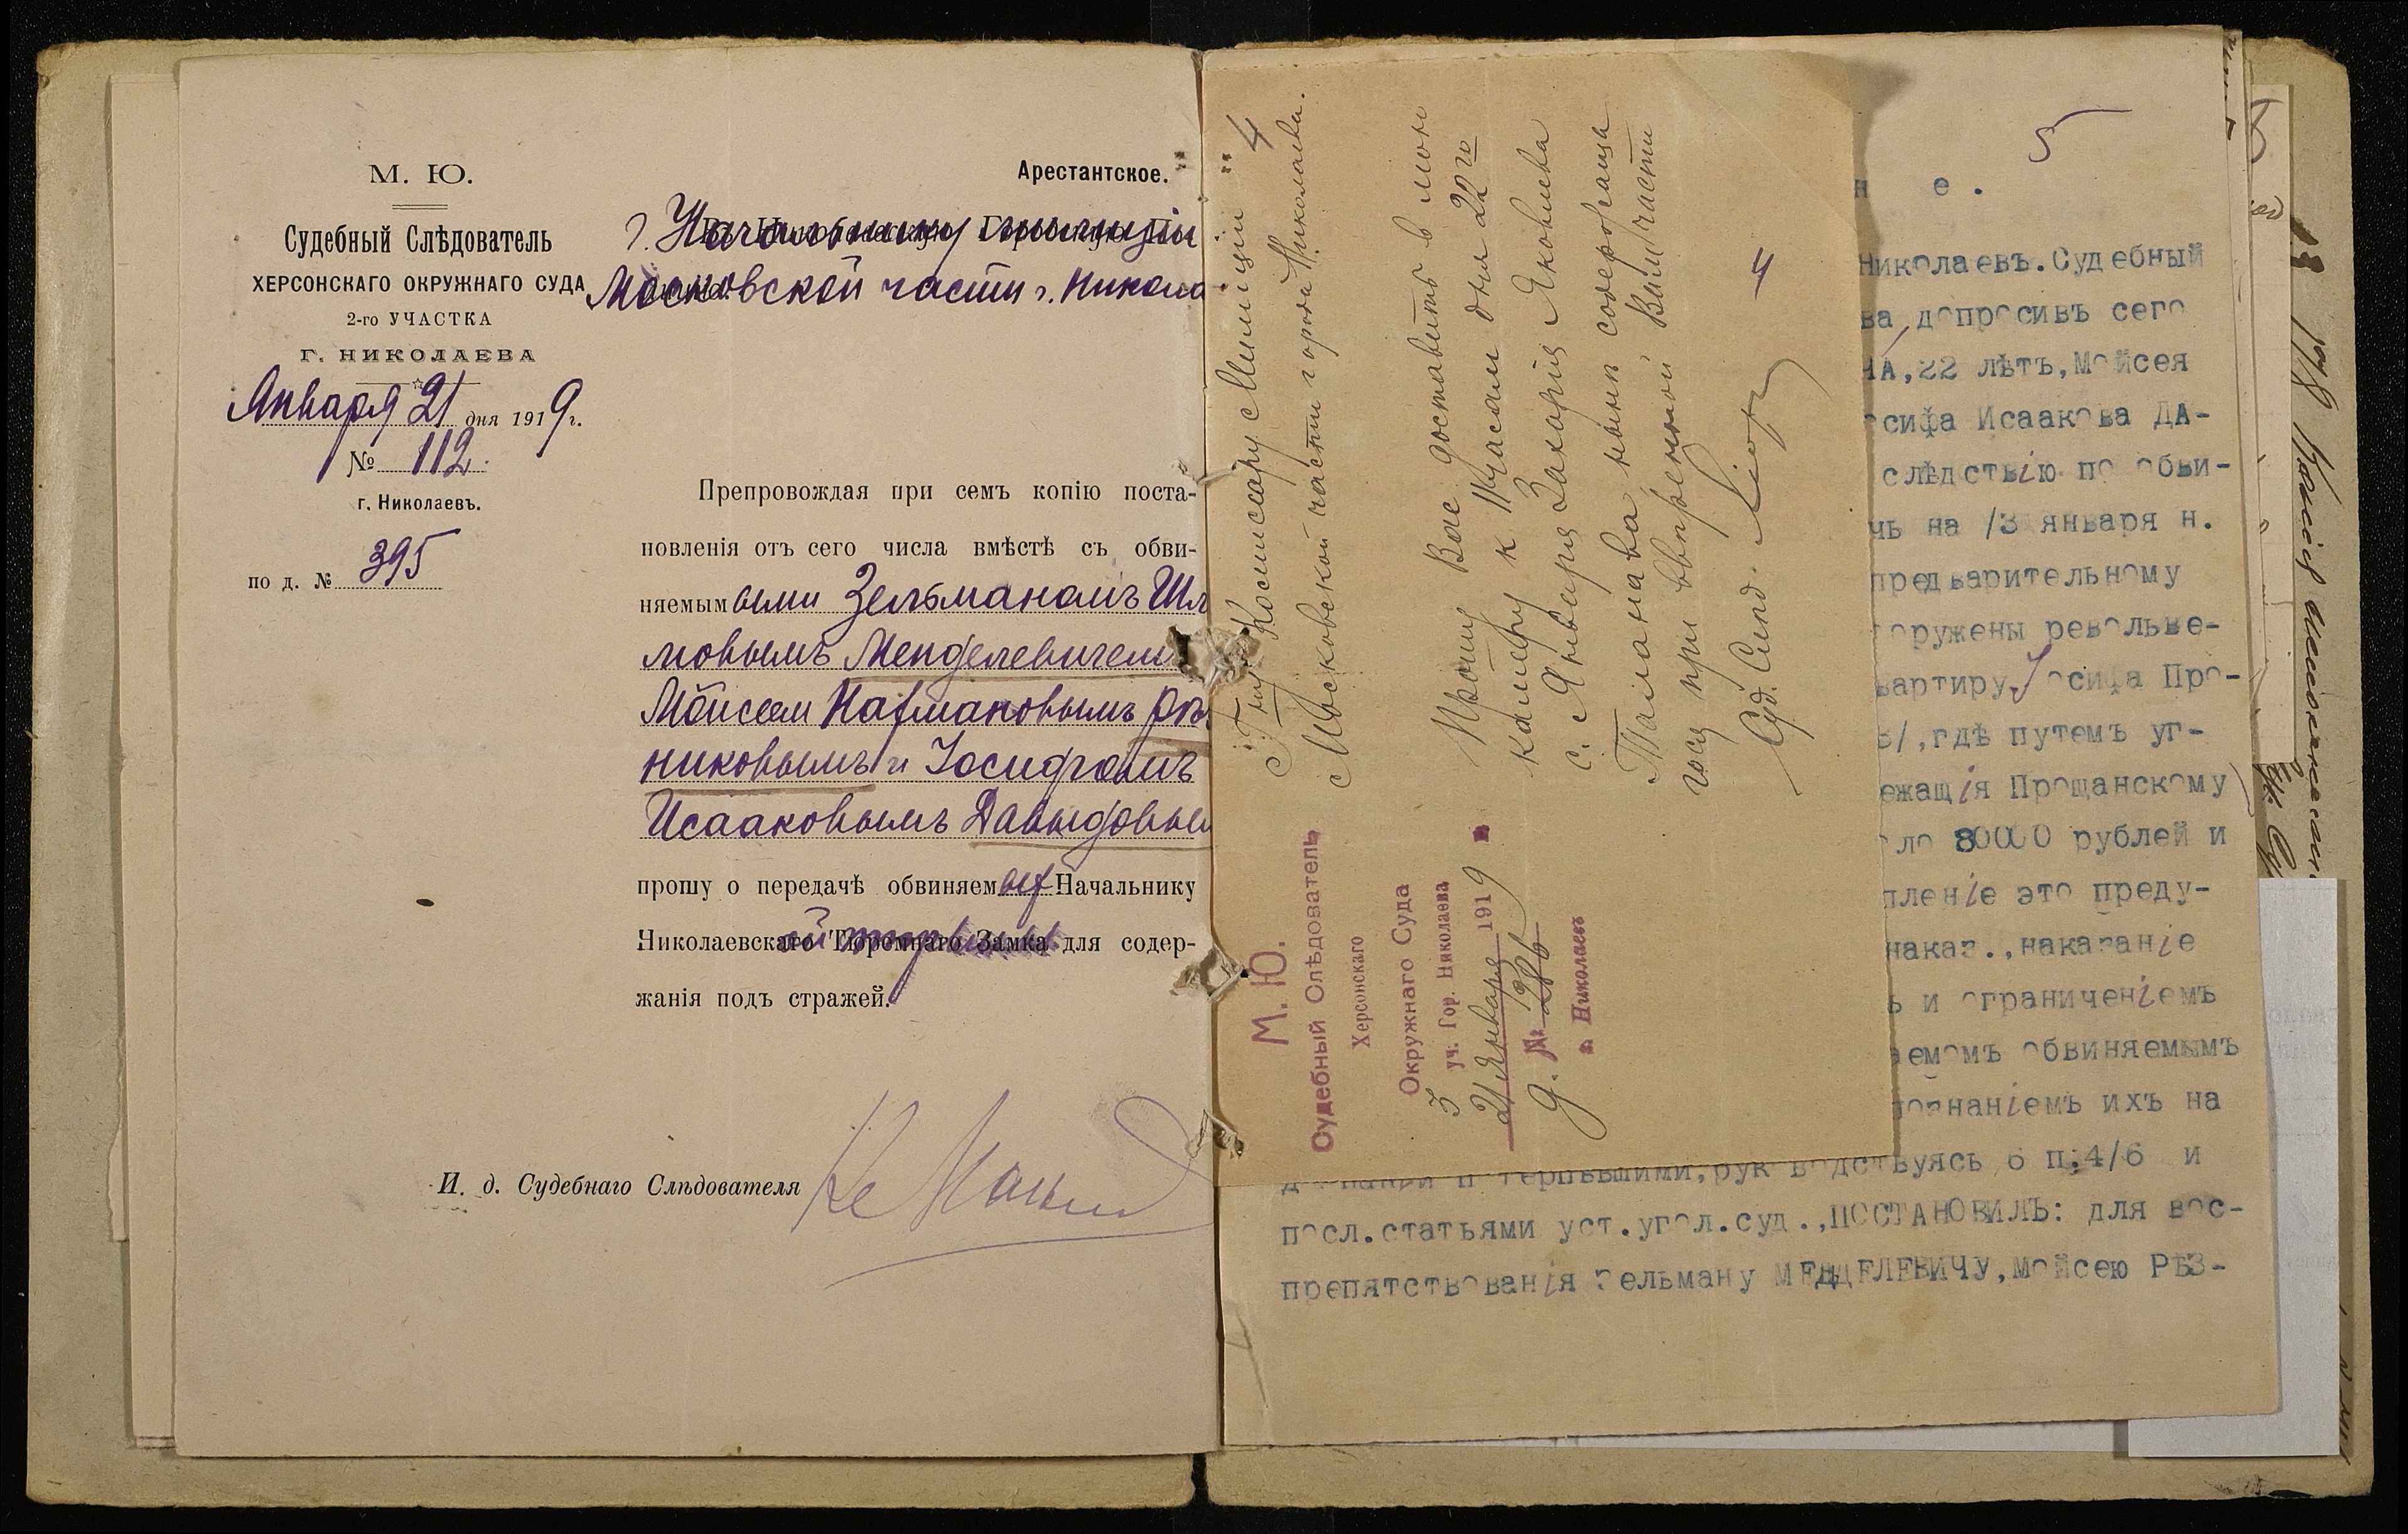 М. Ю.
Судебный Слѣдователь
ХЕРСОНСКАГО ОКРУЖНАГО СУДА
2-го УЧАСТКА
Г. НИКОЛАЕВА
Января 21 дня 1919 г.
№ 112.
г. Николаевъ.
по д. № 395
Арестантское.
г. Начальнику милиціи
Московской части г. Никола
Препровождая при семъ копію поста-
новленія отъ сего числа вмѣстѣ съ обви-
няемымъ ыми Зельманомъ Шл
мовымъ Менделевичем
Мойсеем Нахмановымъ Рѣз
никовымъ и Іосифомъ
Исааковымъ Давыдовым
прошу о передачѣ обвиняемыхъ Начальнику
Николаевскаго Тюремнаго Замка для содер-
жанія подъ стражей.
И. д. Судебнаго Слѣдователя
4
Г-ну Комиссару Милиции
Московской части города Николаева.
Прошу Вас доставить в мою
камеру к 11 часам дня 22го
с. Января Захария Яковлева
Таламанова ныне содержаща
гося при вверенной Вам части
Суд. След.
4
М. Ю.
Судебный Слѣдователь
Херсонскаго
Окружнаго Суда
3 уч. Гор. Николаева
21 Января 1919
д. № 286
г. Николаевъ
5
н е .
Николаевъ. Судебный
ва, допросивъ сего
НА, 22 лѣтъ, Мойсея
осифа Исаакова ДА-
слѣдствію по обви-
чь на 13 января н.
предварительному
оружены револьве-
вартиру Іосифа Про-
3/, гдѣ путемъ уг-
ежащія Прощанскому
оло 80000 рублей и
пленіе это преду-
наказ., наказаніе
ь и ограниченіемъ
аемомъ обвиняемымъ
ознаніемъ ихъ на
терпѣвшими, руководствуясь 6 п. 4/6 и
посл. статьями уст. угол. суд., ПОСТАНОВИЛЪ: для вос-
препятствованія Зельману МЕНДЕЛЕВИЧУ, Мойсею РѢЗ-